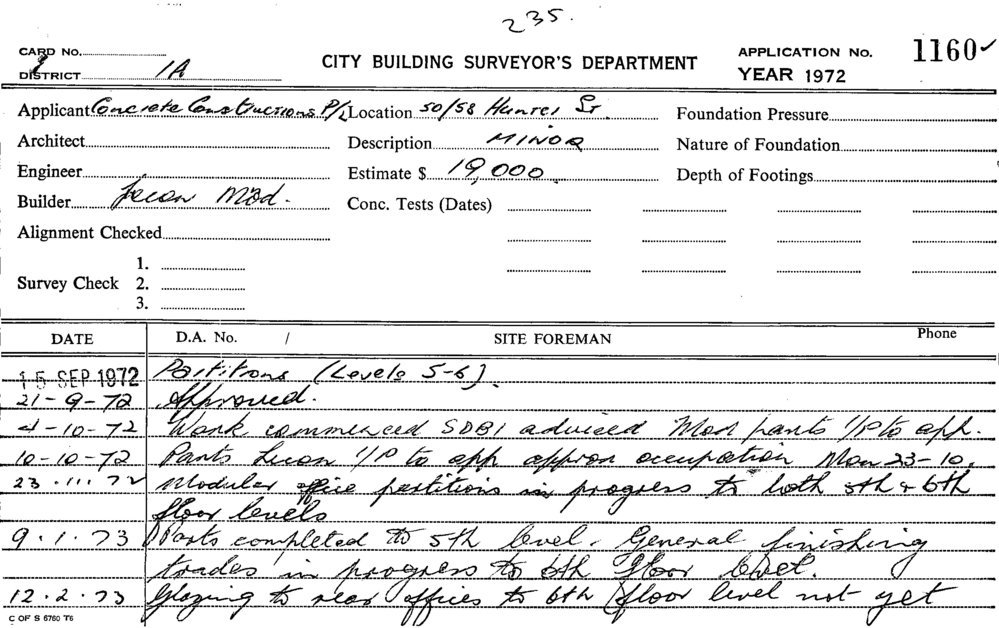 235.
CARD NO.
DISTRICT 1A
CITY BUILDING SURVEYOR'S DEPARTMENT
APPLICATION No. 1160✓
YEAR 1972
Applicant Concrete Constructions P/L Location 50/58 Hunter St. Foundation Pressure
Architect Description MINOR Nature of Foundation
Engineer Estimate $ 19,000 Depth of Footings
Builder Mod. Conc. Tests (Dates)
Alignment Checked
1.
Survey Check 2.
3.
DATE D.A. No. / SITE FOREMAN Phone
15 SEP 1972 Partitions (Levels 5-6).
21-9-72 Approved.
4-10-72 Work commenced SDBI adviced Mod parts I/P to app.
10-10-72 Parts I/P to app approx occupation Mon 23-10.
23.11.72 Modular office partitions in progress to both 5th & 6th
floor levels
9.1.73 Parts completed to 5th level. General finishing
trades in progress to 6th floor level.
12.2.73 Glazing to rear offices to 6th floor level not yet
C OF S 6760 T6